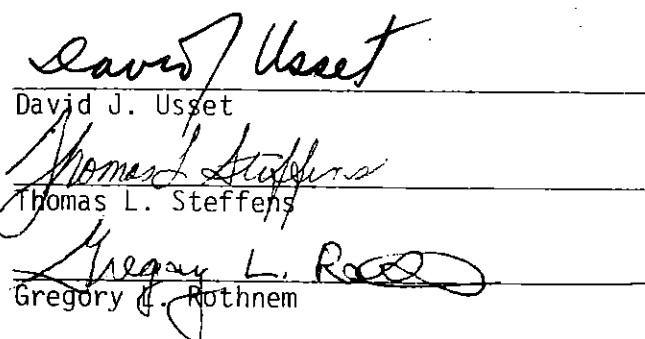 David J Usset
David J. Usset
Thomas L Steffens
Thomas L. Steffens
Gregory L. Ro
Gregory L. Rothnem